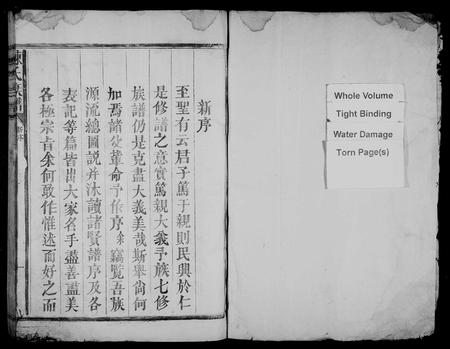 新序
至聖有云君子篤於親則民興於仁
是修譜之意實篤親大義予族七修
族譜仍是克盡大義美哉斯舉尙何
加焉諸父輩命予作序余竊覽吾族
源流總圖説并沐讀諸賢譜序及各
表記等篇皆出大家名手盡善盡美
各極宗旨余何敢作惟述而好之而
氏族譜
Whole Volume
Tight Binding
Water Damage
Torn Page(s)